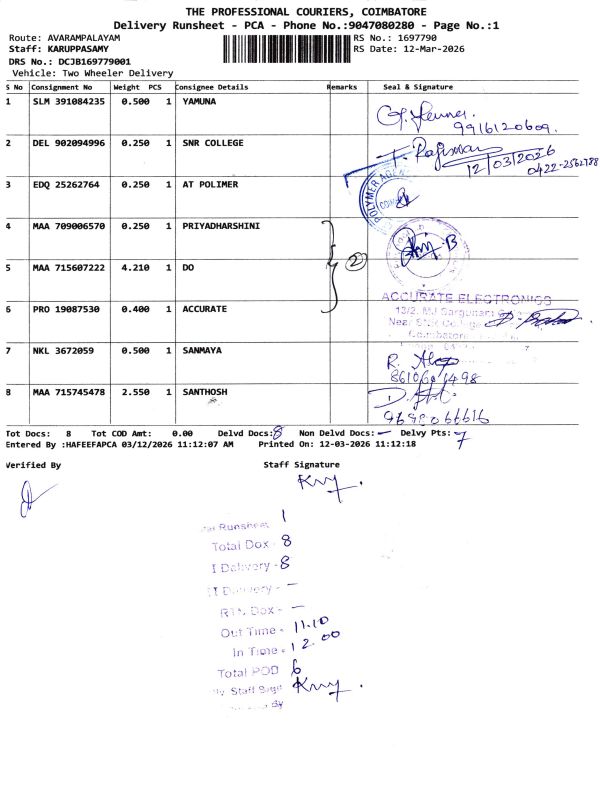 THE PROFESSIONAL COURIERS, COIMBATORE
Delivery Runsheet - PCA - Phone No.:9047080280 - Page No.:1
Route: AVARAMPALAYAM
RS No.: 1697790
Staff: KARUPPASAMY
RS Date: 12-Mar-2026
DRS No.: DCJB169779001
Vehicle: Two Wheeler Delivery
S No Consignment No Weight PCS Consignee Details Remarks Seal & Signature
1 SLM 391084235 0.500 1 YAMUNA
9916120609.
2 DEL 902094996 0.250 1 SNR COLLEGE
12/03/2026
0422-2562788
3 EDQ 25262764 0.250 1 AT POLIMER
POLYMER AGEN
4 MAA 709006570 0.250 1 PRIYADHARSHINI
2
5 MAA 715607222 4.210 1 DO
6 PRO 19087530 0.400 1 ACCURATE
ACCURATE ELECTRONICS
13/2, MJ
Near SNR College
Coimbatore
7 NKL 3672059 0.500 1 SANMAYA
8 MAA 715745478 2.550 1 SANTHOSH
Tot Docs: 8 Tot COD Amt: 0.00 Delvd Docs: 8 Non Delvd Docs: — Delvy Pts: 7
Entered By :HAFEEFAPCA 03/12/2026 11:12:07 AM Printed On: 12-03-2026 11:12:18
Verified By
Staff Signature
Runsheet 1
Total Dox - 8
I Delivery - 8
II Delivery - —
RTN Dox - —
Out Time - 11.10
In Time - 12.00
Total POD 6
Staff Sign
By